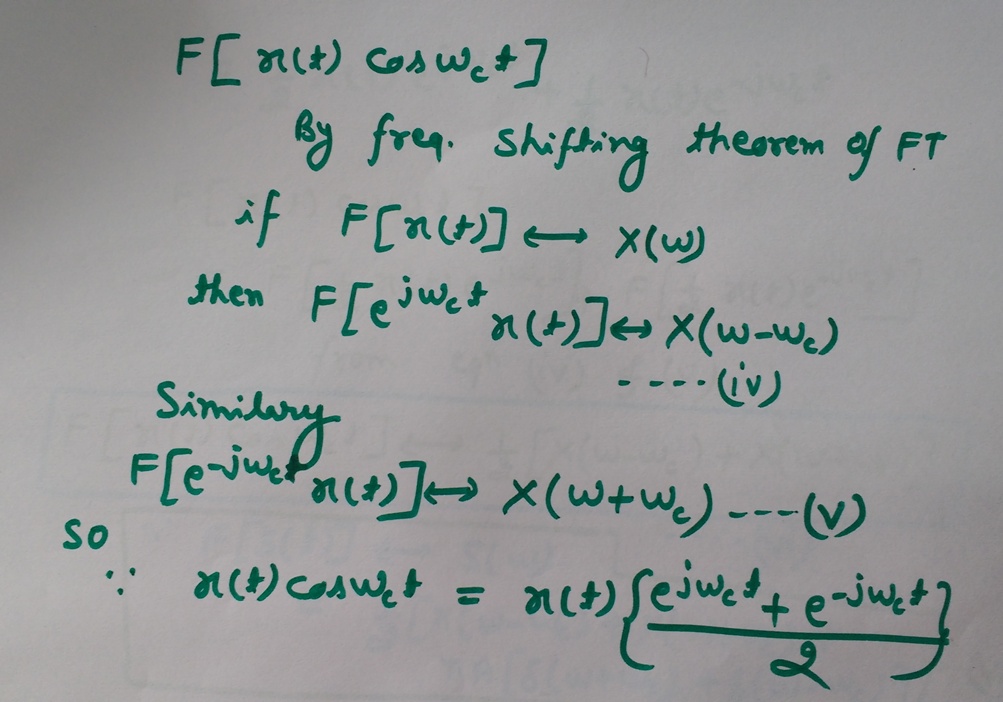 F[x(t) cosω_c t]
By freq. shifting theorem of FT
if F[x(t)] ↔ X(ω)
then F[e^{jω_c t} x(t)] ↔ X(ω-ω_c)
-----(iv)
Similary
F[e^{-jω_c t} x(t)] ↔ X(ω+ω_c) ----(v)
so
∵ x(t) cosω_c t = x(t) {(e^{jω_c t} + e^{-jω_c t})/2}